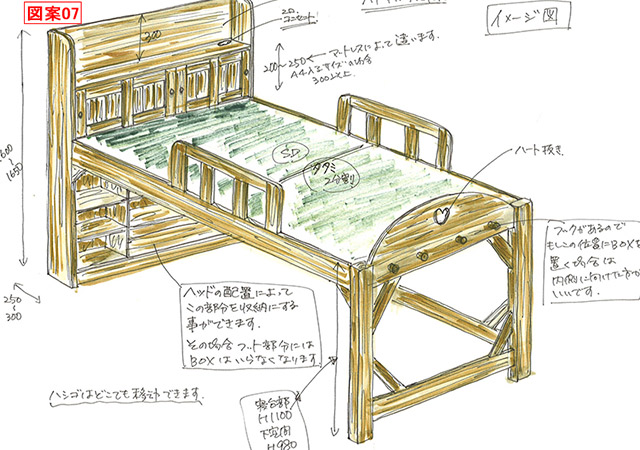 図案07
イメージ図
20
コンセント
300
200~250 ← マットレスによって違います。
A4入るサイズの場合
300以上
1650
SD
タタミ
2分割り
ハート抜き
フックがあるので
もしこの位置にBOXを
置く場合は
内側に向けた方が
いいです。
250
~
300
ヘッドの配置によって
この部分を収納にする
事ができます。
その場合フット部分には
BOXはいらなくなります。
ハシゴはどこでも移動できます。
寝台部
H1100
下空間
H980